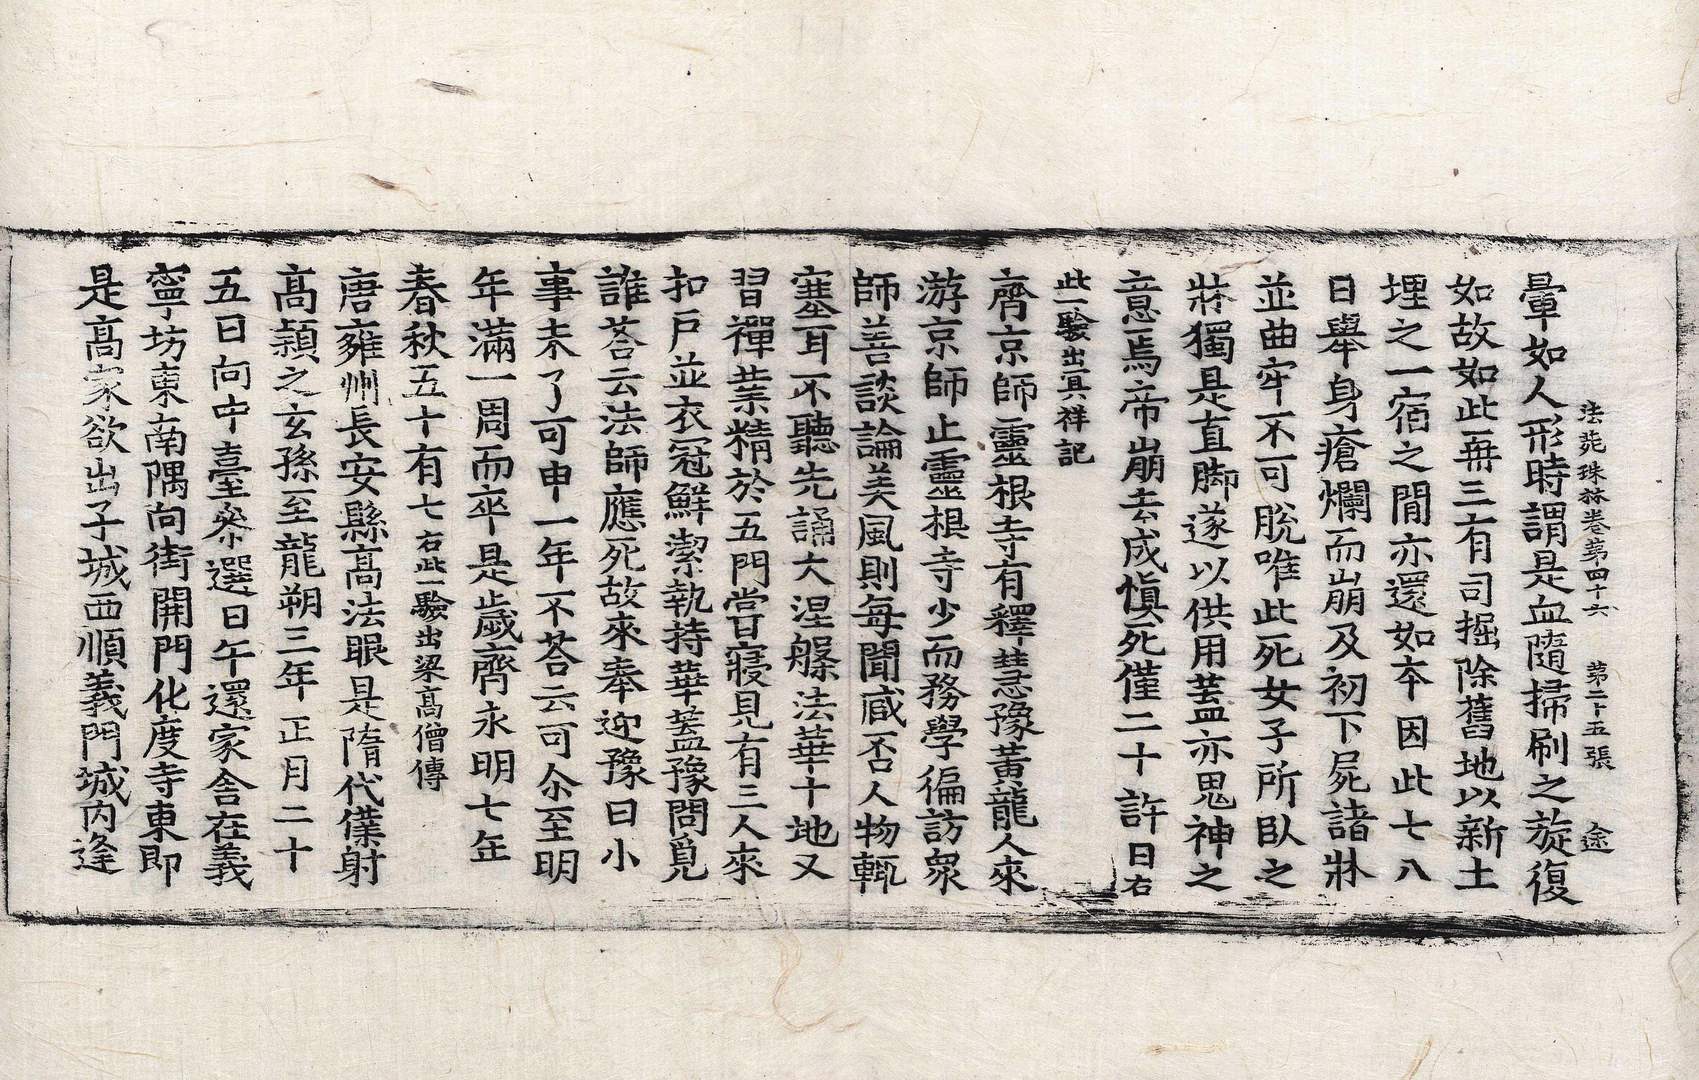 法苑珠林卷第四十六　第二十五張　途
暈如人形時謂是血隨掃刷之旋復
如故如此再三有司掘除舊地以新土
埋之一宿之間亦還如本因此七八
日舉身瘡爛而崩及初下屍諸牀
並曲牢不可脫唯此死女子所臥之
牀獨是直脚遂以供用蓋亦思神之
意焉帝崩去成愼死僅二十許日右
此一驗出冥祥記
齊京師靈根寺有釋慧豫黃龍人來
游京師止靈根寺少而務學徧訪衆
師善談論美風則每聞臧否人物輒
塞耳不聽先誦大涅槃法華十地又
習禪業精於五門嘗寢見有三人來
扣戶並衣冠鮮潔執持華蓋豫問覓
誰荅云法師應死故來奉迎豫曰小
事未了可申一年不荅云可尒至明
年滿一周而卒是歲齊永明七年
春秋五十有七右此一驗出梁高僧傳
唐雍州長安縣高法眼是隋代僕射
高熲之玄孫至龍朔三年正月二十
五日向中臺叅選日午還家舍在義
寧坊東南隅向街開門化度寺東即
是高家欲出子城西順義門城內逢